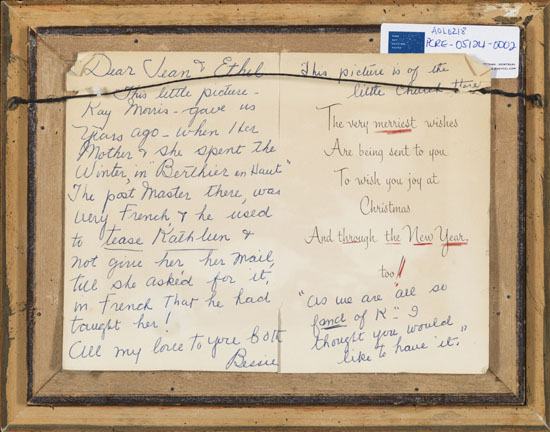 AOLO218
PCRE-05124-0002
Dear Jean & Ethel
This little picture -
Kay Morris - gave us
Years ago - when I her
Mother & she spent the
Winter, in "Berthier en Haut"
The post Master there, was
very French, & he used
to tease Kathleen &
not give her her mail,
till she asked for it,
in French that he had
taught her!
All my love to you both
Bessie
This picture is of the
little Church there
The very merriest wishes
Are being sent to you
To wish you joy at
Christmas
And through the New Year,
too!!
"as we are all so
fond of K" - I
thought you would
like to have it."